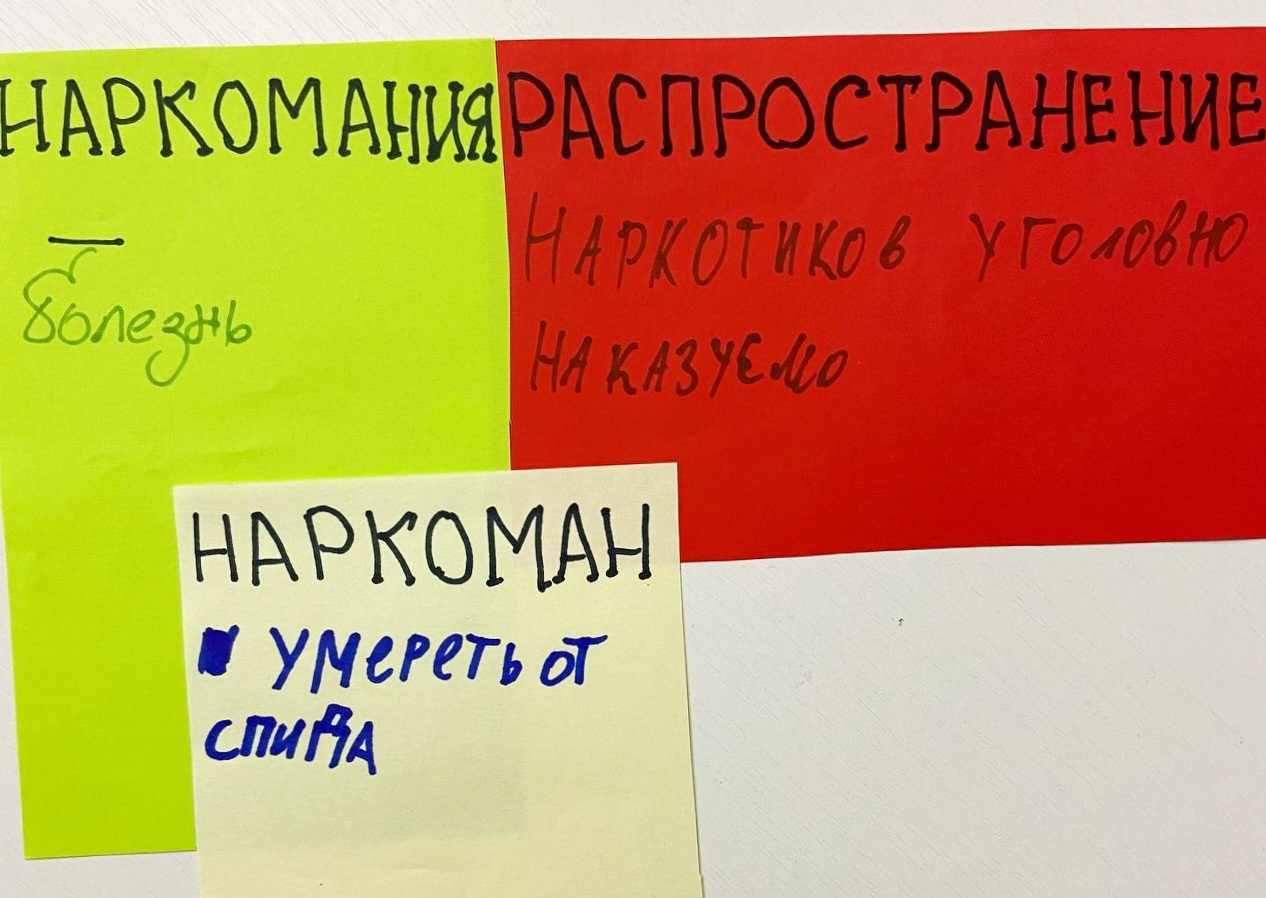 НАРКОМАНИЯ
—
болезнь
РАСПРОСТРАНЕНИЕ
НАРКОТИКОВ УГОЛОВНО
НАКАЗУЕМО
НАРКОМАН
УМЕРЕТЬ ОТ
СПИДА